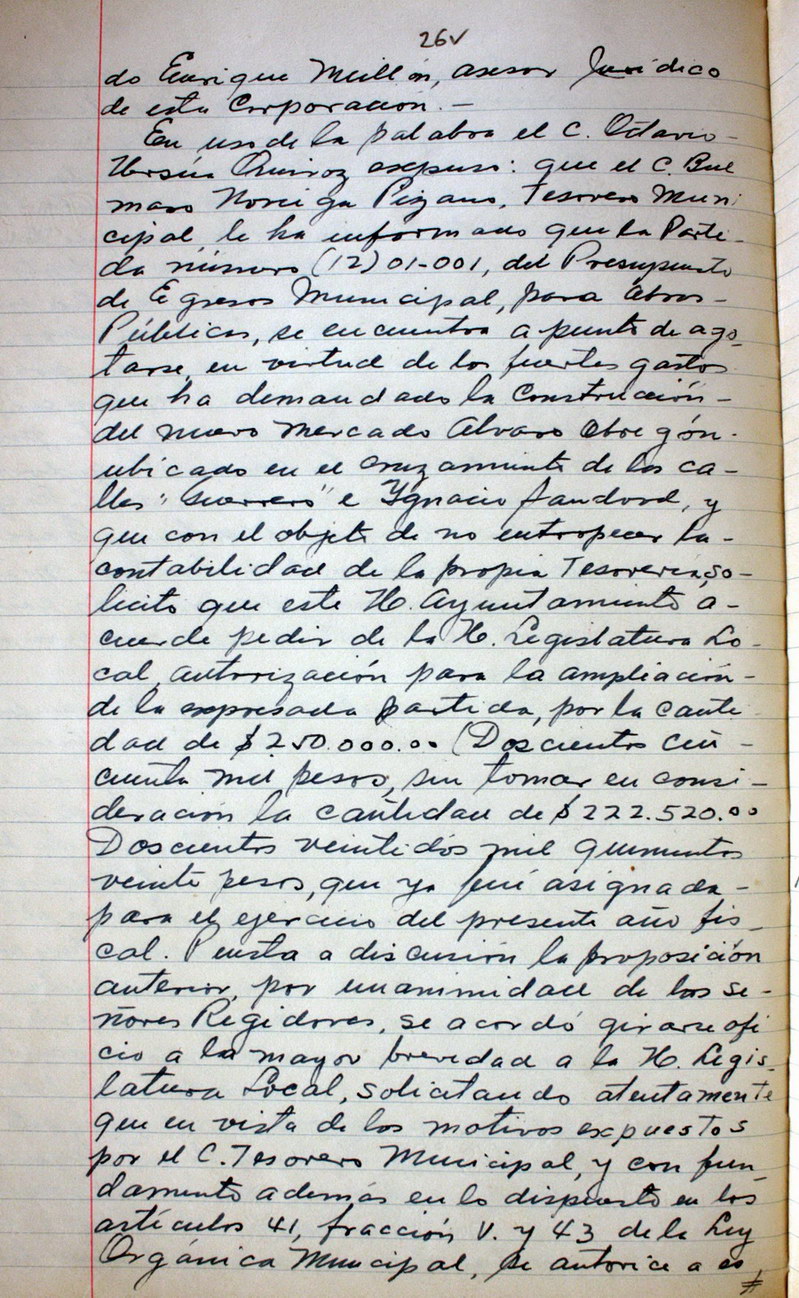 26v
do Enrique Millón, asesor Jurídico
de esta Corporación.-
En uso de la palabra el C. Octavio-
Ursúa Quiroz expuso: que el C. Bue
naro Noriega Pizano, Tesorero Muni
cipal, le ha informado que la Parti-
da número (12) 01-001, del Presupuesto
de Egresos Municipal, para Obras-
Públicas, se encuentra a punto de ago-
tarse, en virtud de los fuertes gastos
que ha demandado la Construcción-
del nuevo mercado Alvaro Obregón-
ubicado en el cruzamiento de las ca-
lles "Guerrero" e Ygnacio Sandoval, y
que con el objeto de no entropecer la-
contabilidad de la propia Tesorería, so-
licito que este H. Ayuntamiento a-
cuerde pedir de la H. Legislatura Lo-
cal, autorización para la ampliación-
de la expresada partida, por la canti
dad de $250.000.00 (Doscientos cin-
cuenta mil pesos, sin tomar en consi-
deración la cantidad de $222.520.00
Doscientos veintidos mil quinientos
veinte pesos, que ya fué asignada-
para el ejercicio del presente año fis-
cal. Puesta a discusión la proposición
anterior, por unanimidad de los se-
ñores Regidores, se acordó girarse ofi
cio a la mayor brevedad a la H. Legis-
latura Local, solicitando atentamente
que en vista de los motivos expuestos
por el C. Tesorero Municipal, y con fun-
damento además en lo dispuesto en los
artículos 41, fracción V. y 43 de la Ley
Orgánica Municipal, se autorice a es